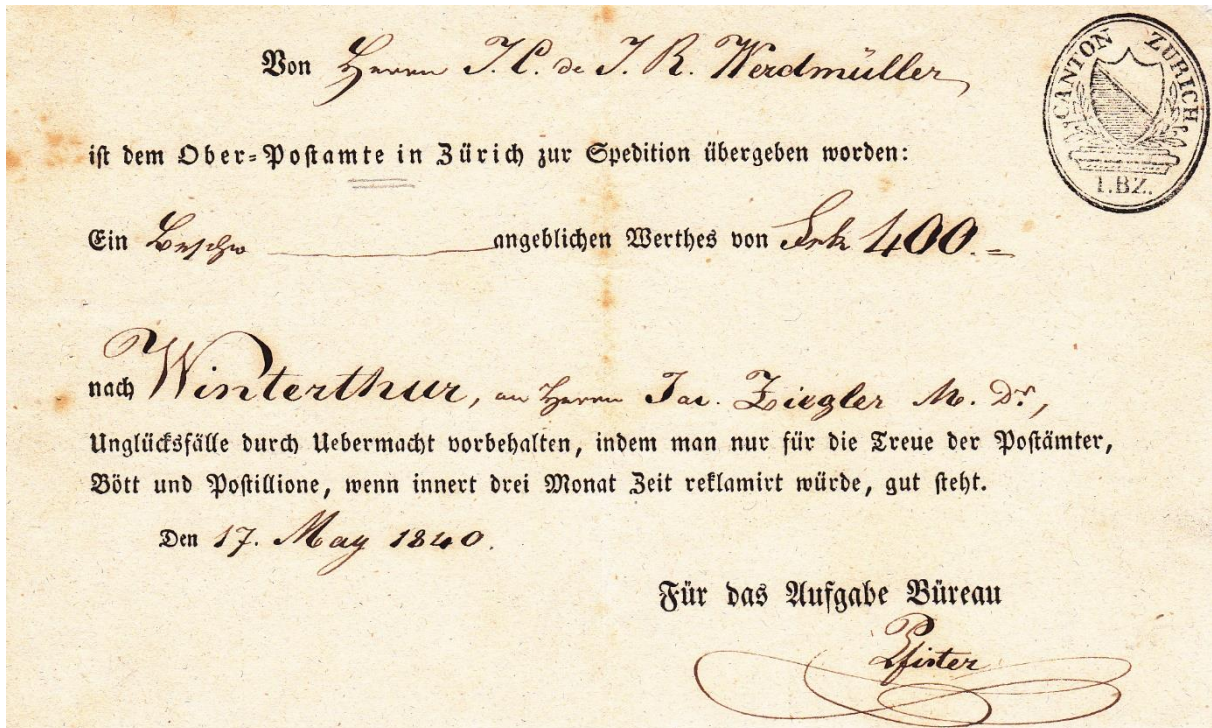 Von Herrn J. C. de J. R. Werdmüller
CANTON ZURICH
1.BZ.
ist dem Ober-Postamte in Zürich zur Spedition übergeben worden:
Ein angeblichen Werthes von 400.-
nach Winterthur, an Herrn Jac. Ziegler M. Dr,
Unglücksfälle durch Uebermacht vorbehalten, indem man nur für die Treue der Postämter,
Bött und Postillione, wenn innert drei Monat Zeit reklamirt würde, gut steht.
Den 17. May 1840.
Für das Aufgabe Büreau
Pfister